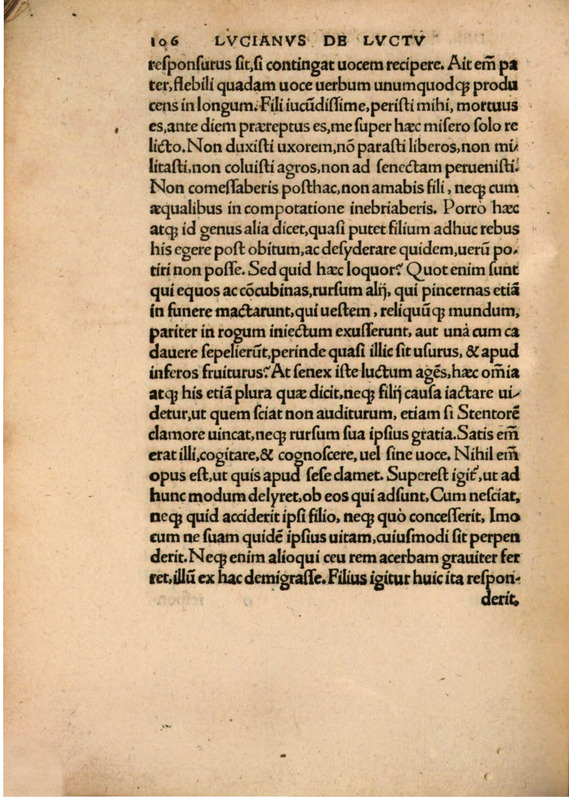 106 LVCIANVS DE LVCTV
responsurus sit, si contingat uocem recipere. Ait em̃ pa
ter, flebili quadam uoce uerbum unumquodqꝫ produ
cens in longum. Fili iucũdissime, peristi mihi, mortuus
es, ante diem præreptus es, me super hæc misero solo re
licto. Non duxisti uxorem, nõ parasti liberos, non mi⸗
litasti, non coluisti agros, non ad senectam peruenisti.
Non comessaberis posthac, non amabis fili, neqꝫ cum
æqualibus in compotatione inebriaberis. Porrò hæc
atqꝫ id genus alia dicet, quasi putet filium adhuc rebus
his egere post obitum, ac desyderare quidem, uerũ po⸗
tiri non posse. Sed quid hæc loquor? Quot enim sunt
qui equos ac cõcubinas, rursum alij, qui pincernas etiã
in funere mactarunt, qui uestem, reliquũqꝫ mundum,
pariter in rogum iniectum exusserunt, aut unà cum ca
dauere sepelierũt, perinde quasi illic sit usurus, & apud
inferos fruiturus? At senex iste luctum agẽs, hæc om̃ia
atqꝫ his etiã plura quæ dicit, neqꝫ filij causa iactare ui⸗
detur, ut quem sciat non auditurum, etiam si Stentorẽ
clamore uincat, neqꝫ rursum sua ipsius gratia. Satis em̃
erat illi, cogitare, & cognoscere, uel sine uoce. Nihil em̃
opus est, ut quis apud sese clamet. Superest igit᷑, ut ad
hunc modum delyret, ob eos qui adsunt, Cum nesciat,
neqꝫ quid acciderit ipsi filio, neqꝫ quò concesserit, Imo
cum ne suam quidẽ ipsius uitam, cuiusmodi sit perpen
derit. Neqꝫ enim alioqui ceu rem acerbam grauiter fer
ret, illũ ex hac demigrasse. Filius igitur huic ita respon⸗
derit,